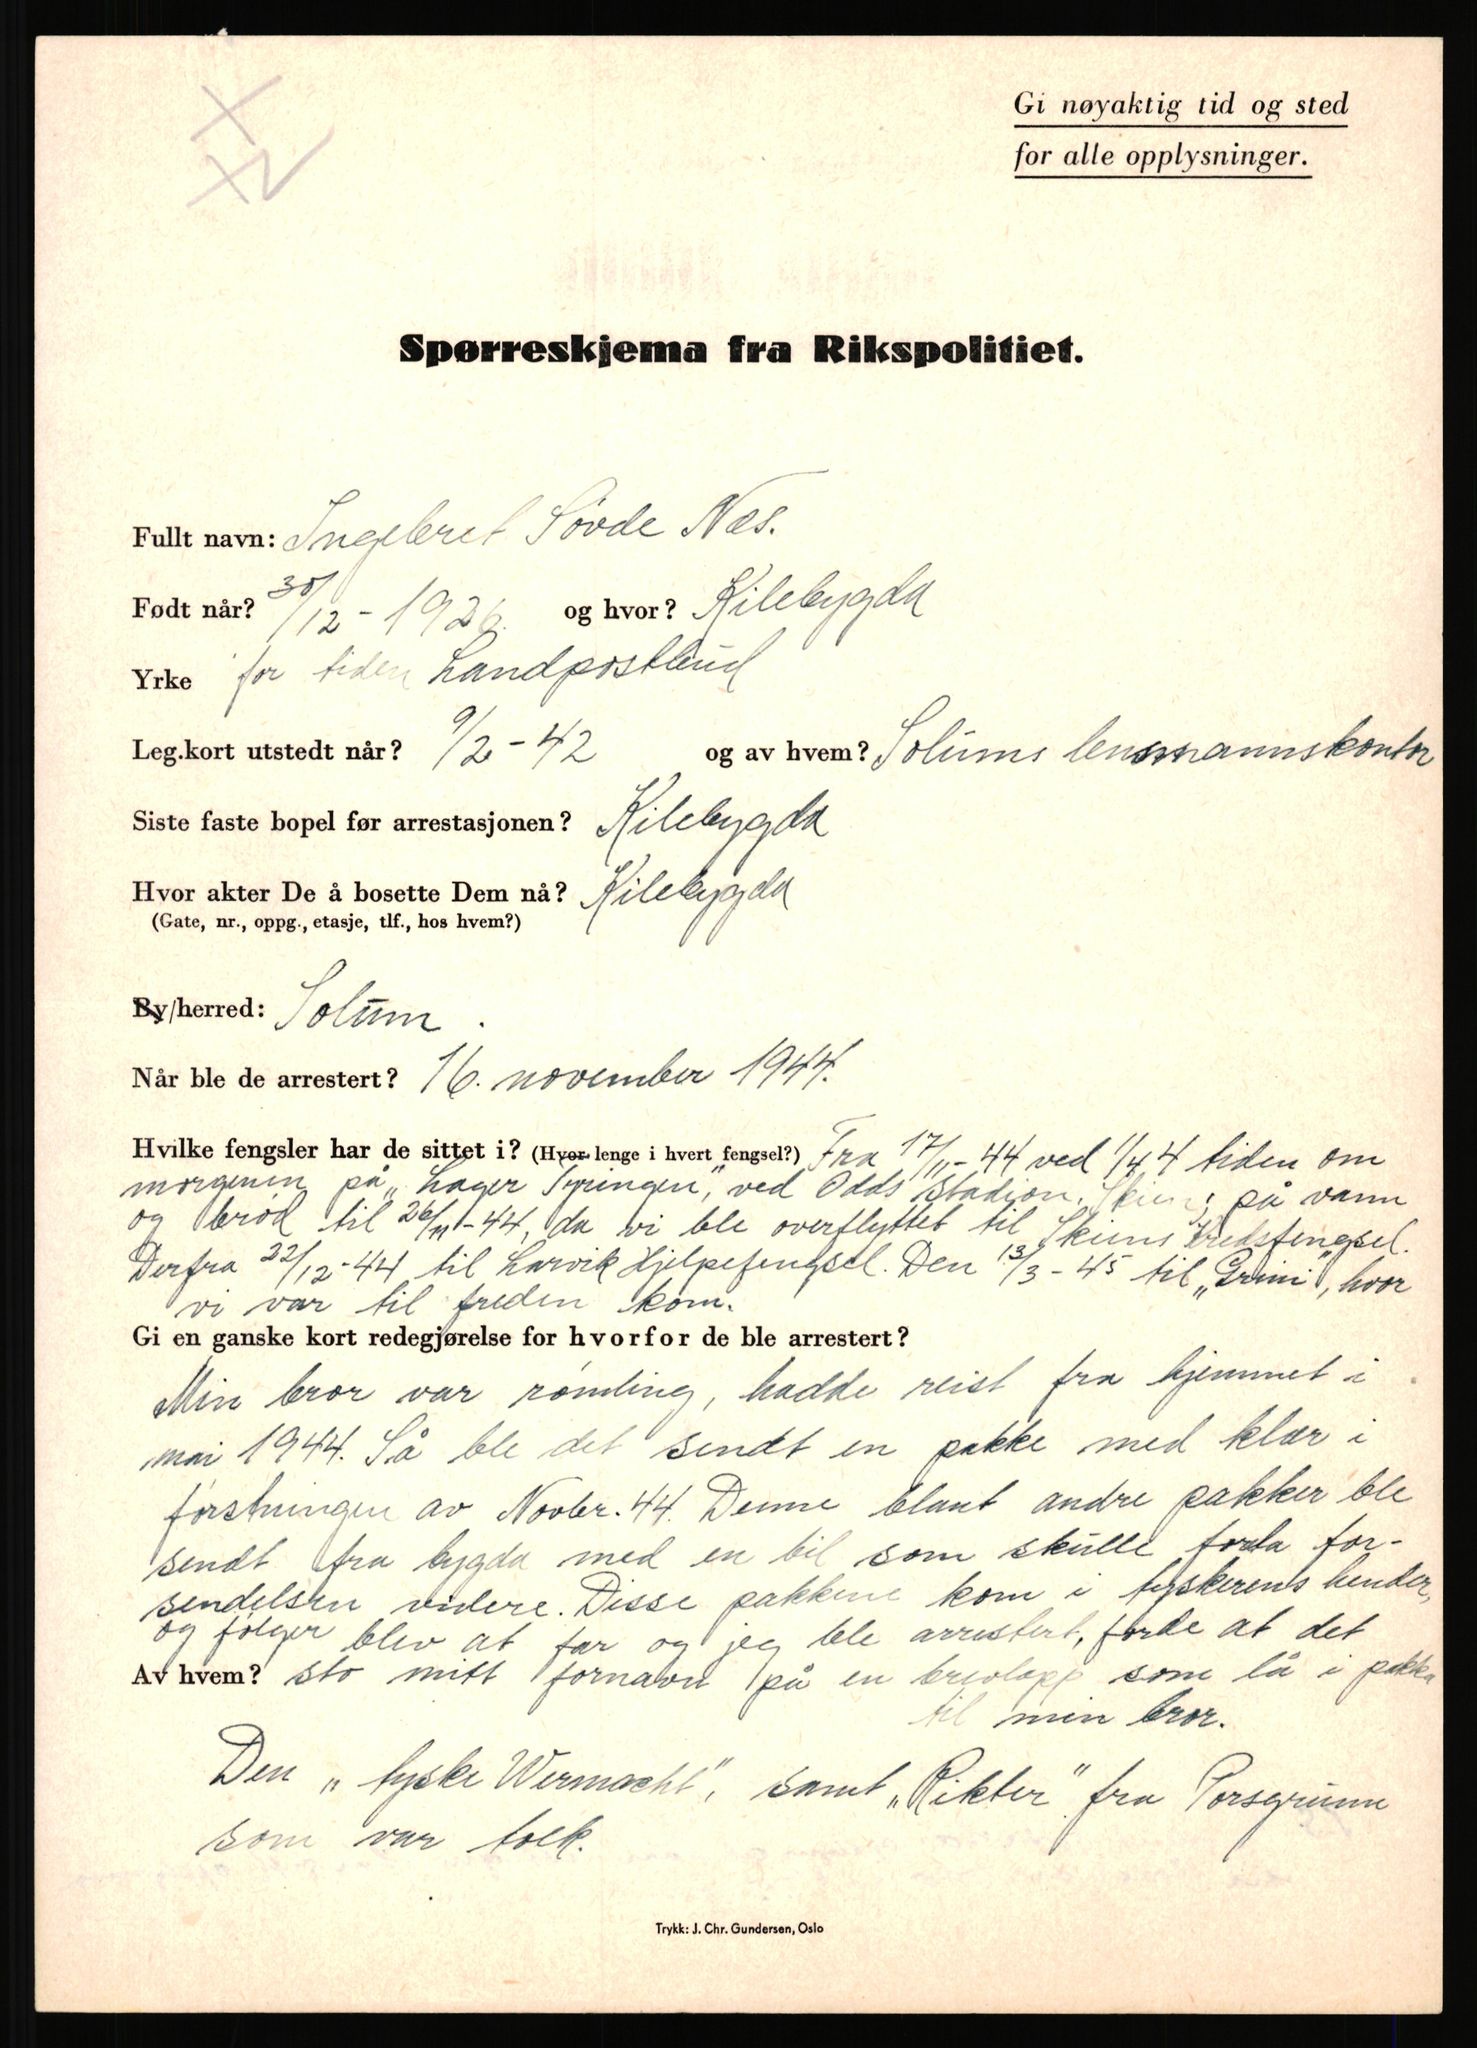 Gi nøyaktig tid og sted
for alle opplysninger.
Spørreskjema fra Rikspolitiet.
Fullt navn: Ingebret Søvde Næs.
Født når? 30/12-1926. og hvor? Kilebygda
Yrke for tiden Landpostbud
Leg.kort utstedt når? 9/2-42 og av hvem? Solums lensmannskontor
Siste faste bopel før arrestasjonen? Kilebygda
Hvor akter De å bosette Dem nå? Kilebygda
(Gate, nr., oppg., etasje, tlf., hos hvem?)
By/herred: Solum.
Når ble de arrestert? 16. november 1944.
Hvilke fengsler har de sittet i? (Hvor lenge i hvert fengsel?) Fra 17/11-44 ved 1/4 4 tiden om
morgenen på "Lager Tyringen", ved Odds stadion, Skien; på vann
og brød til 26/11-44, da vi ble overflyttet til Skiens kredsfengsel.
Derfra 22/12-44 til Larvik Hjelpefengsel. Den 13/3-45 til "Grini", hvor
vi var til freden kom.
Gi en ganske kort redegjørelse for hvorfor de ble arrestert?
Min bror var rømling, hadde reist fra hjemmet i
mai 1944. Så ble det sendt en pakke med klær i
førstningen av Novbr. 44. Denne blant andre pakker ble
sendt fra bygda med en bil som skulle forla for-
sendelsen videre. Disse pakkene kom i tyskerens hender,
og følger blev at far og jeg ble arrestert, forde at det
Av hvem? sto mitt fornavn på en brevlapp som lå i pakka
til min bror.
Den "tyske Wermacht", samt "Rikter" fra Porsgrunn
som var tolk.
Trykk: J. Chr. Gundersen, Oslo